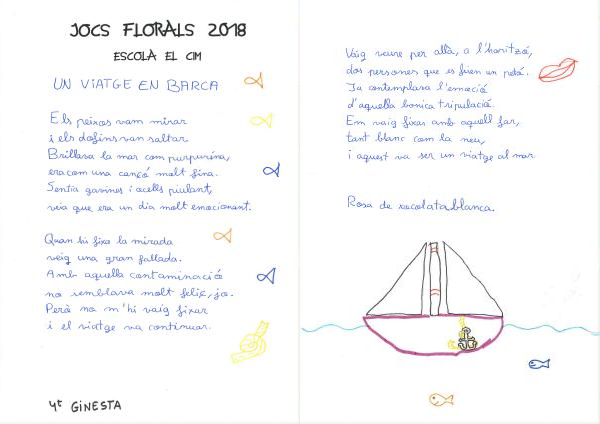 JOCS FLORALS 2018
ESCOLA EL CIM
UN VIATGE EN BARCA
Els peixos vam mirar
i els dofins van saltar.
Brillava la mar com purpurina,
era com una cançó molt fina.
Sentia gavines i ocells piulant,
veia que era un dia molt emocionant.
Quan hi fixo la mirada
veig una gran fallada.
Amb aquella contaminació
no semblava molt feliç, jo.
Però no m'hi vaig fixar
i el viatge va continuar.
4t GINESTA
Vaig veure per allà, a l'horitzó,
dos persones que es feien un petó.
Jo contemplava l'emoció
d'aquella bonica tripulació.
Em vaig fixar amb aquell far,
tant blanc com la neu,
i aquest va ser un viatge al mar.
Rosa de xocolata blanca.